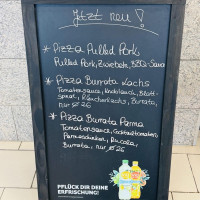 Jetzt neu!
* Pizza Pulled Pork
Pulled Pork, Zwiebeln, BBQ-Sauce
* Pizza Burrata Lachs
Tomatensauce, Knoblauch, Blatt-
spinat, Räucherlachs, Burrata,
nur ø 26
* Pizza Burrata Parma
Tomatensauce, Cocktailtomaten,
Parmaschinken, Rucola,
Burrata, nur ø 26
PFLÜCK DIR DEINE
ERFRISCHUNG!